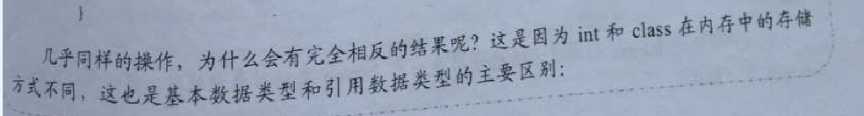 }
几乎同样的操作，为什么会有完全相反的结果呢？这是因为 int 和 class 在内存中的存储
方式不同，这也是基本数据类型和引用数据类型的主要区别：